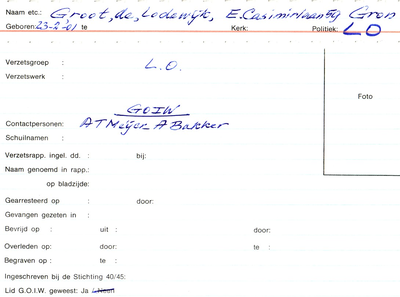 Naam etc.: Groot, de, Lodewijk, E. Casimirlaan 59 Gron
Geboren: 23-2-'01 te Kerk: Politiek: LO
Verzetsgroep : L.O.
Verzetswerk :
Foto
GOIW
Contactpersonen: A T Meijer A Bakker
Schuilnamen :
Verzetsrapp. ingel. dd. : bij:
Naam genoemd in rapp.:
op bladzijde:
Gearresteerd op : door:
Gevangen gezeten in :
Bevrijd op : uit : door:
Overleden op: door: te :
Begraven op : te :
Ingeschreven bij de Stichting 40/45:
Lid G.O.I.W. geweest: Ja / Neen